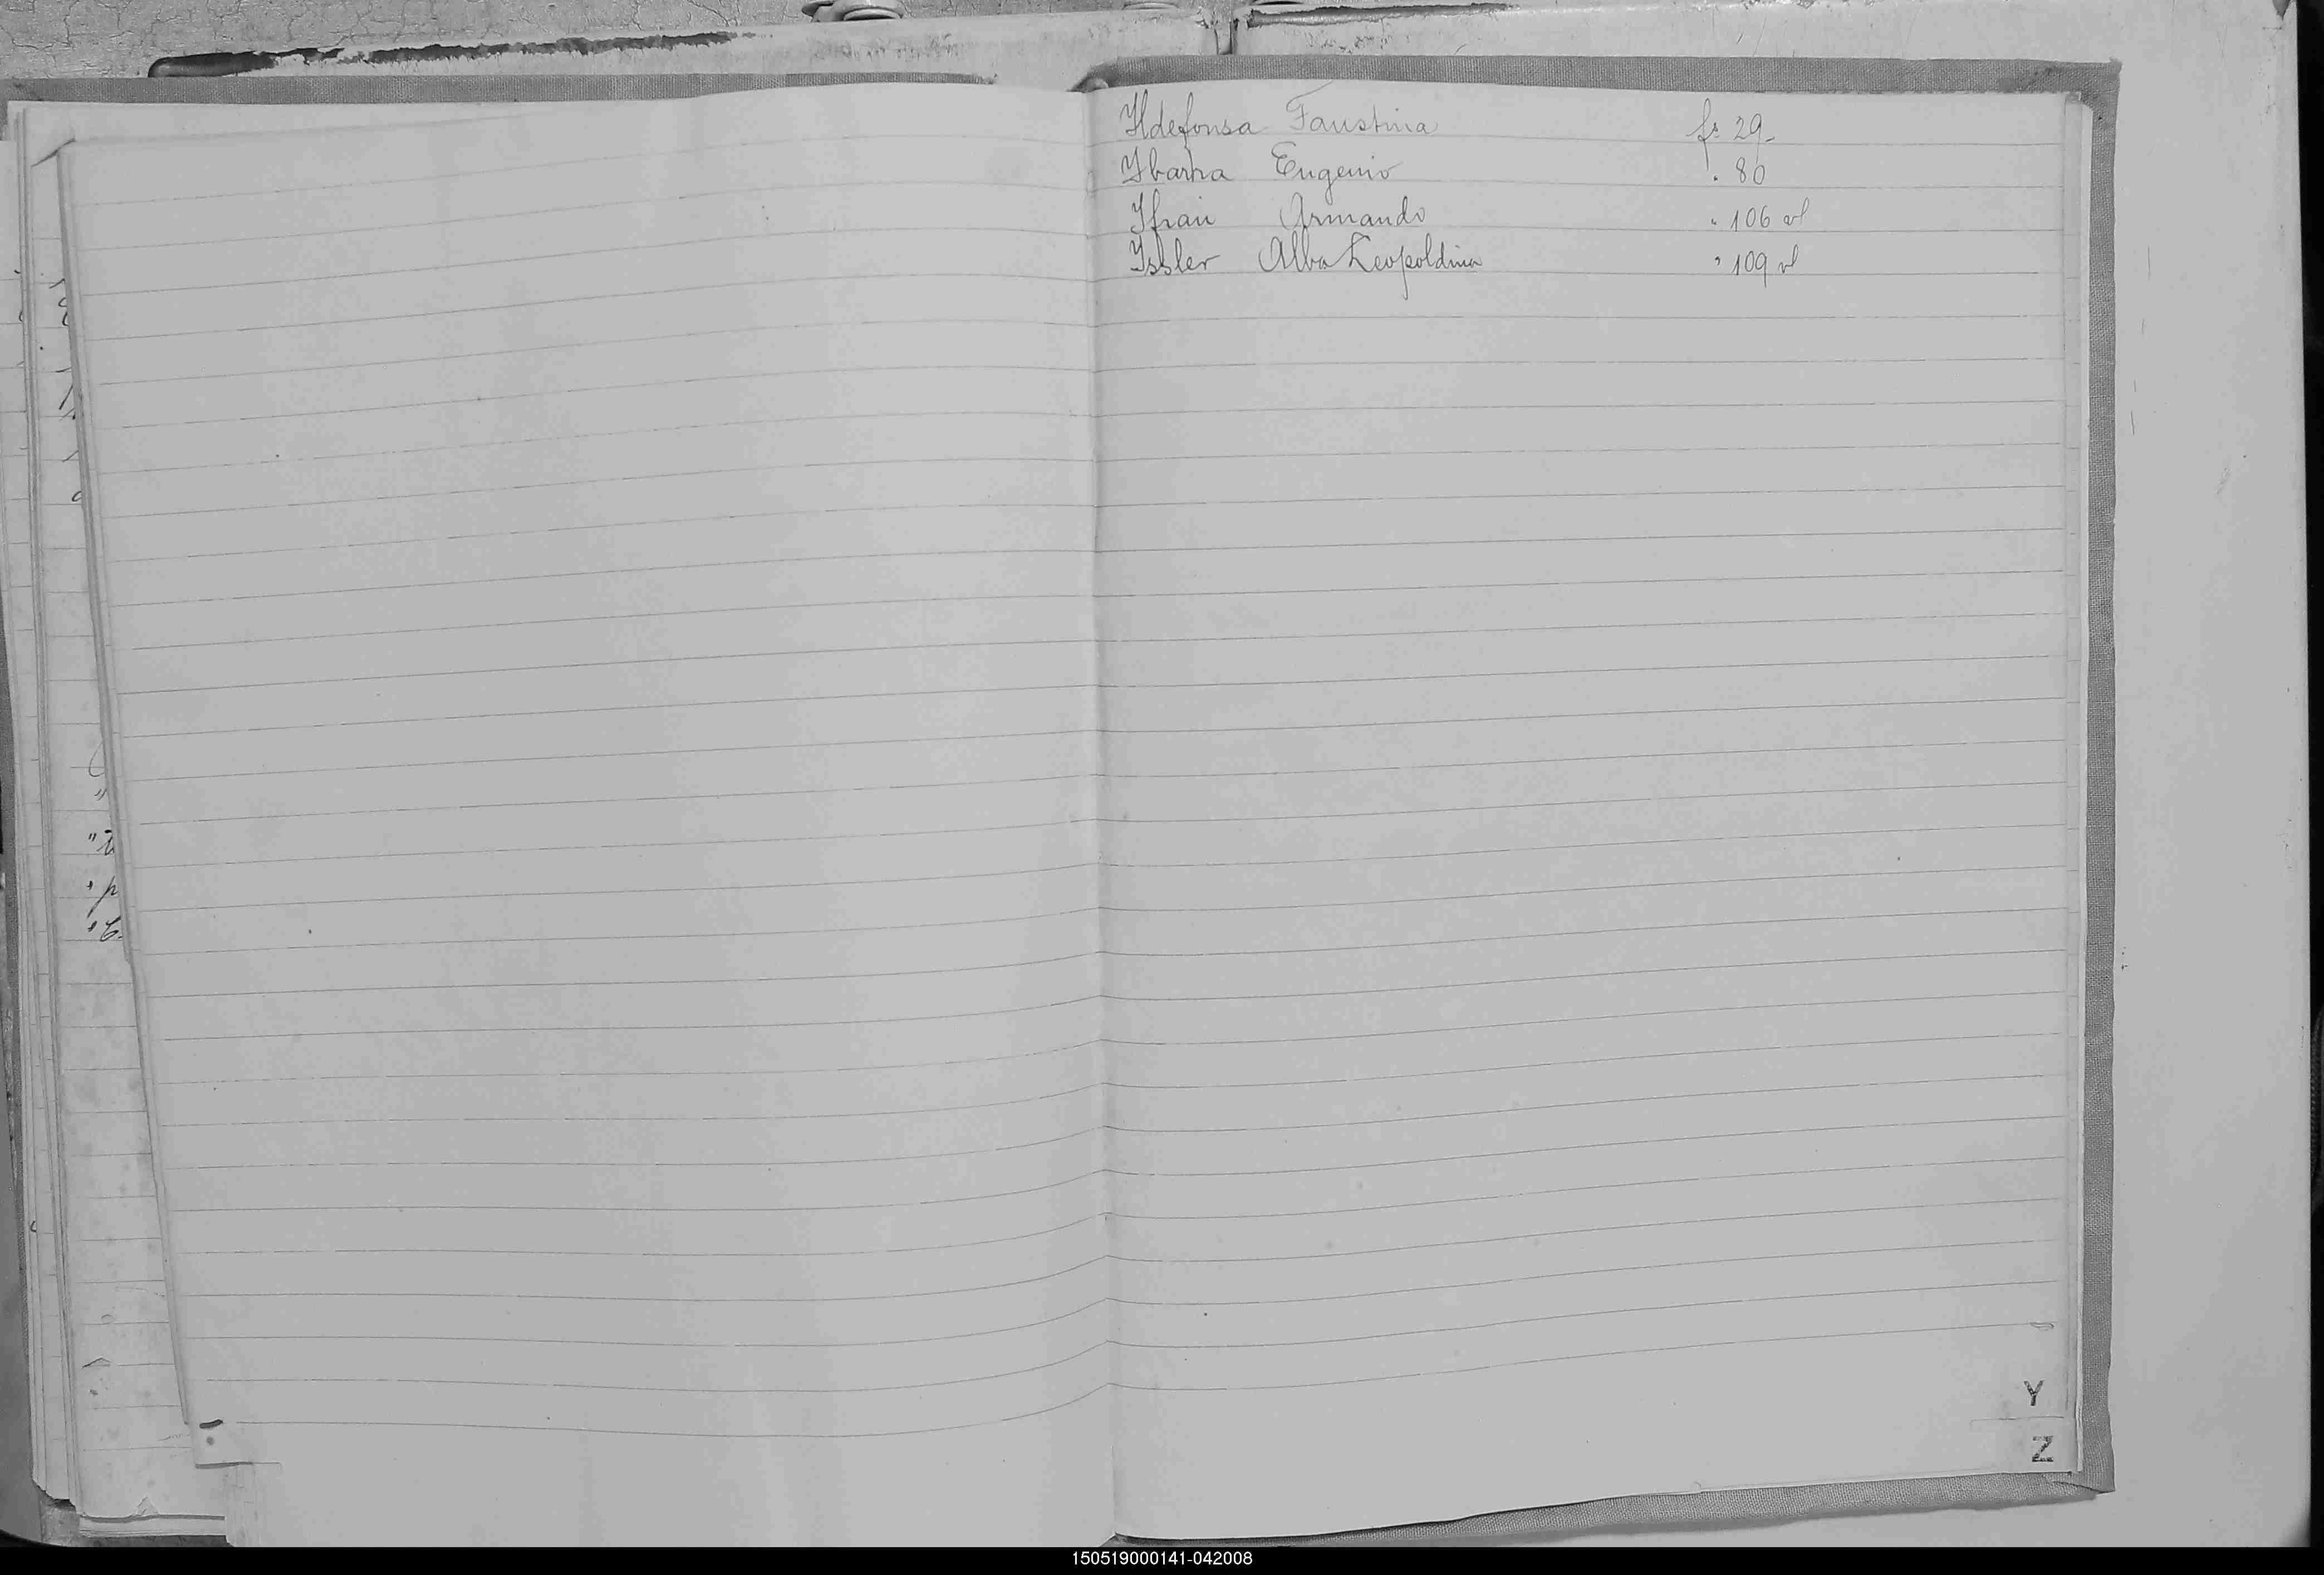 Ildefonsa Faustina fs 29
Ibarra Eugenio . 80
Ifrain Armando " 106 vl
Issler Alba Leopoldina " 109 vl
Y
Z
150519000141-042008